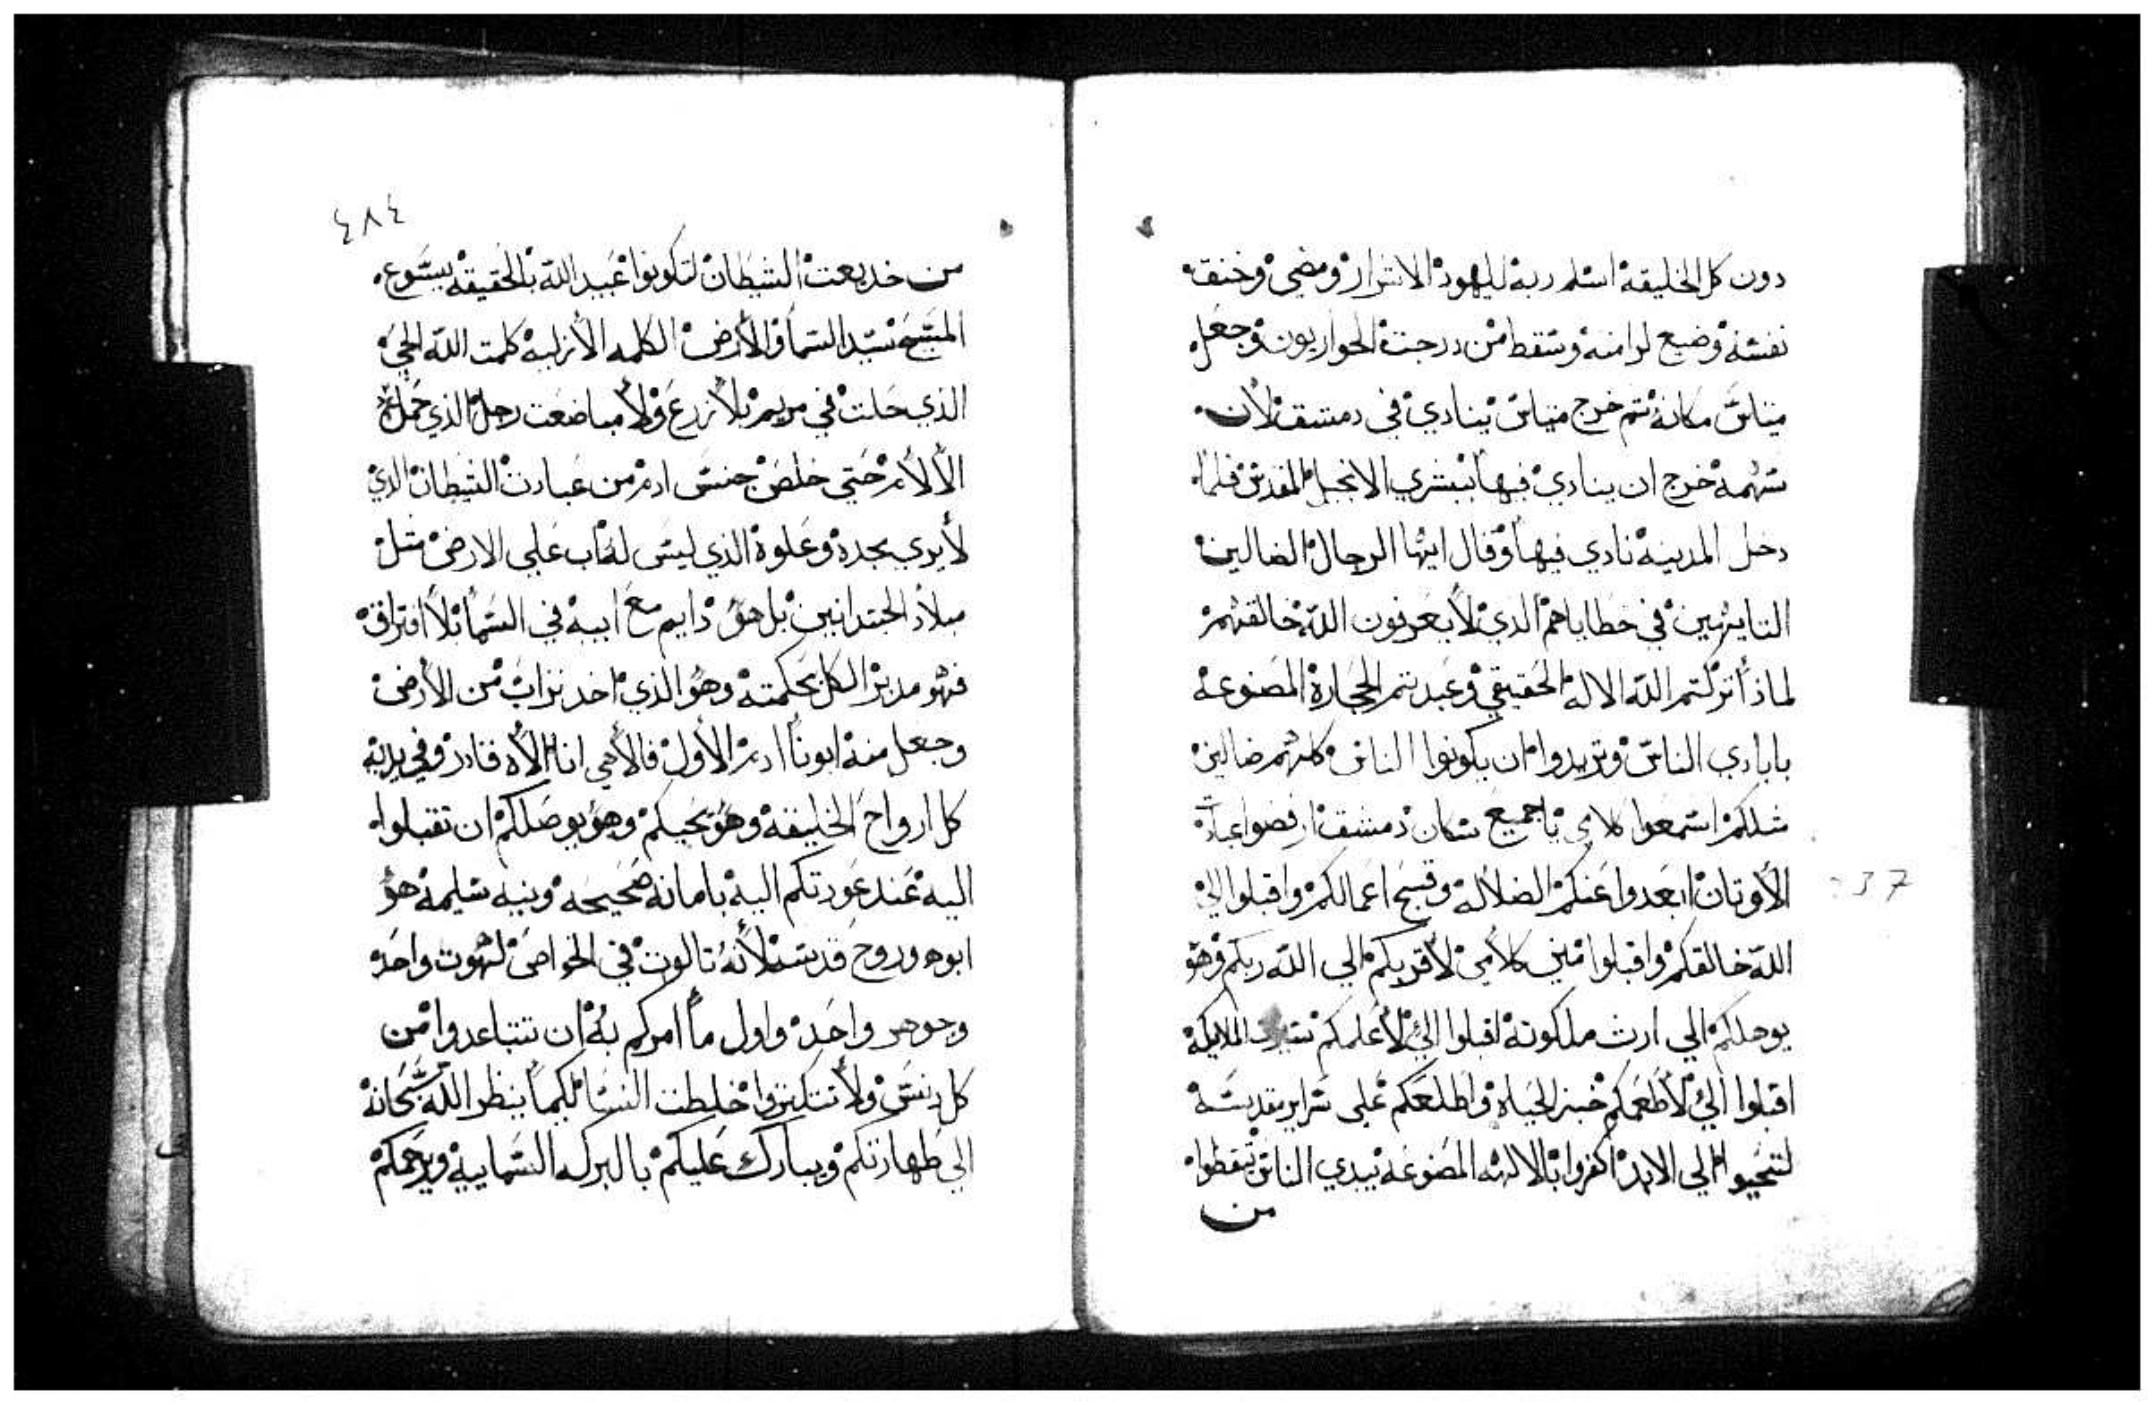 دون كل الخليقة اسلم ربه لليهود الاشرار ومضي وخنق
نفسه وضيع كرامته وسقط من درجة الحواريون وجعل
متياس مكانه ثم خرج متياس ينادي في دمشق لأن
سهمه خرج ان ينادي فيها ببشري الانجيل المقدس فلما
دخل المدينة نادي فيها وقال ايها الرجال الضالين
التايهين في خطاياهم الذي لا يعرفون الله خالقهم
لماذا تركتم الله الاله الحقيقي وعبدتم الحجارة المصنوعة
بايادي الناس وتريدوا ان يكونوا الناس كلهم ضالين
مثلكم استمعوا كلامي يا جميع سكان دمشق ارفضوا عبادة
الأوتان ابعدوا عنكم الضلالة وقبح اعمالكم واقبلوا الي
الله خالقكم واقبلوا مني كلامي لأقربكم الي الله ربكم وهو
يوصلكم الي ارث ملكوته اقبلوا الي لأعلمكم الملايكة
اقبلوا الي لأطعمكم خبز الحياة واطلعكم علي سراير مقدسة
لتحيوا الي الابد اكفروا بالالهه المصنوعة بيدي الناس
من
٤٨٤
من خديعت الشيطان لتكونوا عبيد الله بالحقيقة يسوع
المسيح سيد السما والأرض الكلمه الأزلية كلمت الله الحي
الذي حلت في مريم بلا زرع ولا مباضعت رجل الذي حمل
الألام حتي خلص جنس ادم من عبادت الشيطان الذي
لا يري بمجده وعلوه الذي ليس له اب علي الارض متل
ميلاد الجسدانيين بل هو دايم مع ابيه في السما بلا افتراق
فهو مدبر الكل بحكمته وهو الذي اخد تراب من الأرض
وجعل منه ابونا ادم الأول فالأهي انا الأه قادر وفي يديه
كل ارواح الخليقة وهو يحييكم وهو يوصلكم ان تقبلوا
اليه عند عودتكم اليه بامانه صحيحه ونيه سليمه هو
ابوه وروح قدسه لأنه تالوت في الخواص لهوت واحد
وجوهر واحد واول ما امركم به ان تتباعدوا من
كل دنس ولا تتكتروا خليطت النسا لكيما ينظر الله سبحانه
الي طهارتكم ويبارك عليكم بالبركه السماييه ويرحمكم
37